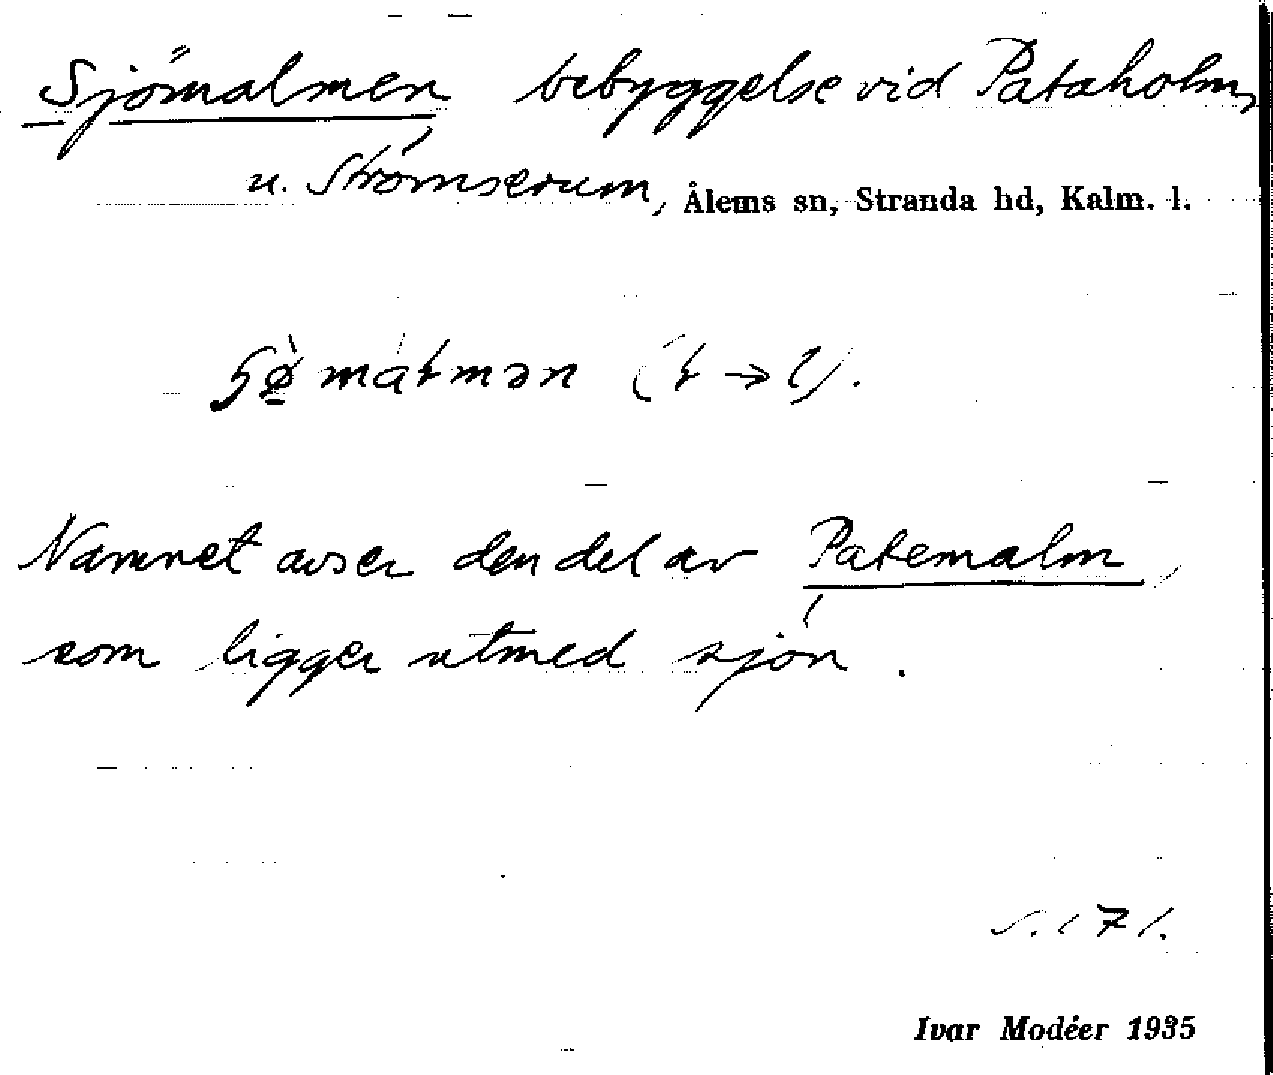 Sjömalmen bebyggelse vid Pataholm,
u. Strömserum, Ålems sn, Stranda hd, Kalm. l.
Namnet avser den del av Patemalm,
som ligger utmed sjön.
s. 171.
Ivar Modéer 1935